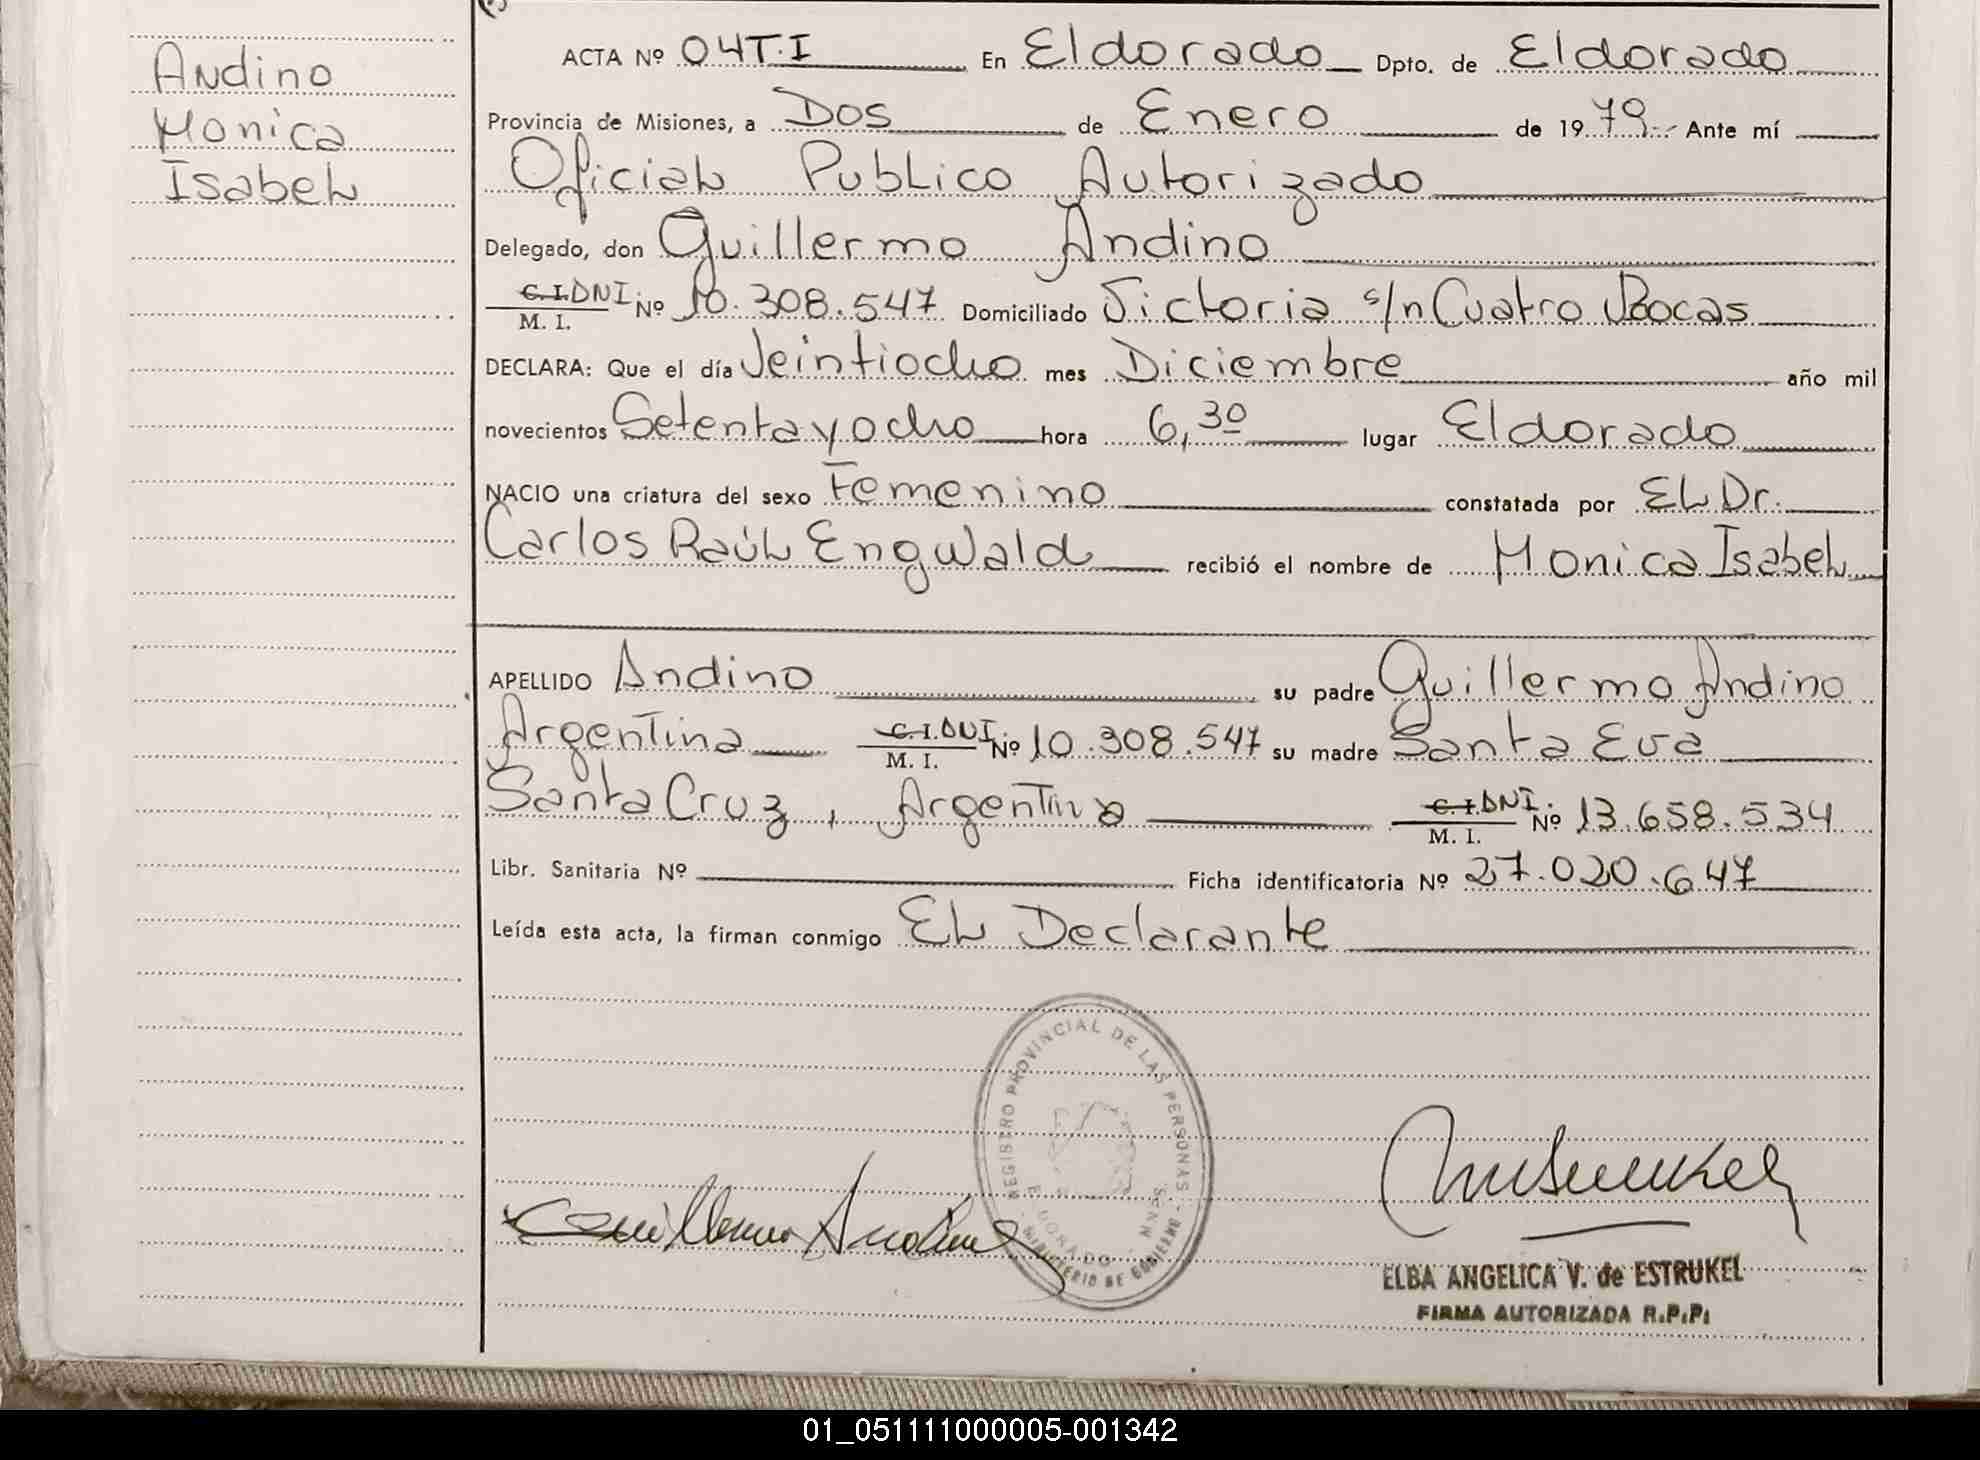 Andino
Monica
Isabel
ACTA Nº 04 T. I En Eldorado Dpto. de Eldorado
Provincia de Misiones, a Dos de Enero de 1979 Ante mí
Oficial Publico Autorizado
Delegado, don Guillermo Andino
C. I. DNI M. I. Nº 10.308.547 Domiciliado Victoria s/n Cuatro Bocas
DECLARA: Que el día Veintiocho mes Diciembre año mil
novecientos Setenta y ocho hora 6,30 lugar Eldorado
NACIO una criatura del sexo Femenino constatada por El Dr.
Carlos Raúl Engwald recibió el nombre de Monica Isabel
APELLIDO Andino su padre Guillermo Andino
Argentina C. I. DNI M. I. Nº 10.308.547 su madre Santa Eva
Santa Cruz, Argentina C. I. DNI M. I. Nº 13.658.534
Libr. Sanitaria Nº Ficha identificatoria Nº 27.020.647
Leída esta acta, la firman conmigo El Declarante
REGISTRO PROVINCIAL DE LAS PERSONAS
ELDORADO - MNES.
MINISTERIO DE GOBIERNO
Guillermo Andino
ELBA ANGELICA V. de ESTRUKEL
FIRMA AUTORIZADA R.P.P.
01_051111000005-001342